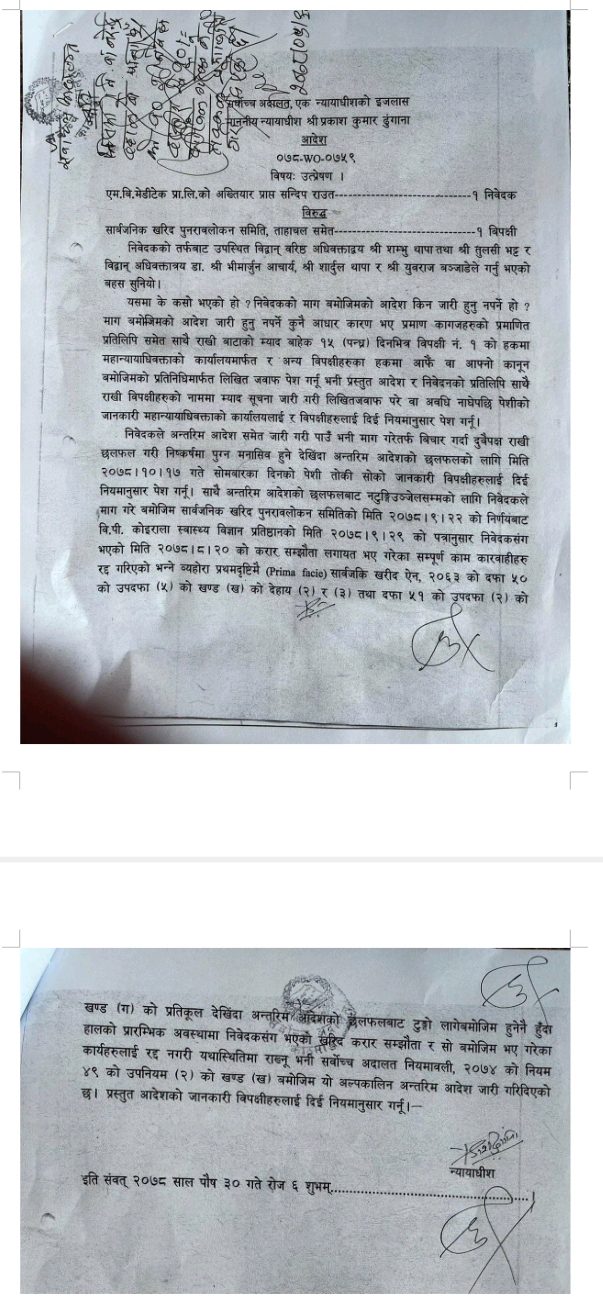 सर्वोच्च अदालत, एक न्यायाधीशको इजलास
माननीय न्यायाधीश श्री प्रकाश कुमार ढुंगाना
आदेश
०७८-WO-०७५९
विषयः उत्प्रेषण ।
एम.बि.मेडीटेक प्रा.लि.को अख्तियार प्राप्त सन्दिप राउत-----------------------------१ निवेदक
विरुद्ध
सार्वजनिक खरिद पुनरावलोकन समिति, ताहाचल समेत-----------------------------१ विपक्षी
निवेदकको तर्फबाट उपस्थित विद्वान् बरिष्ठ अधिवक्ताद्वय श्री शम्भु थापा तथा श्री तुलसी भट्ट र
विद्वान् अधिवक्तात्रय डा. श्री भीमार्जुन आचार्य, श्री शार्दुल थापा र श्री युवराज बञ्जाडेले गर्नु भएको
बहस सुनियो।
यसमा के कसो भएको हो ? निवेदकको माग बमोजिमको आदेश किन जारी हुनु नपर्ने हो ?
माग बमोजिमको आदेश जारी हुनु नपर्ने कुनै आधार कारण भए प्रमाण कागजहरुको प्रमाणित
प्रतिलिपि समेत साथै राखी बाटाको म्याद बाहेक १५ (पन्ध्र) दिनभित्र विपक्षी नं. १ को हकमा
महान्यायाधिवक्ताको कार्यालयमार्फत र अन्य विपक्षीहरुका हकमा आफै वा आफ्नो कानून
बमोजिमको प्रतिनिधिमार्फत लिखित जवाफ पेश गर्नू भनी प्रस्तुत आदेश र निवेदनको प्रतिलिपि साथै
राखी विपक्षीहरुको नाममा म्याद सूचना जारी गरी लिखितजवाफ परे वा अवधि नाघेपछि पेशीको
जानकारी महान्यायाधिवक्ताको कार्यालयलाई र विपक्षीहरुलाई दिई नियमानुसार पेश गर्नू।
निवेदकले अन्तरिम आदेश समेत जारी गरी पाउँ भनी माग गरेतर्फ बिचार गर्दा दुबैपक्ष राखी
छलफल गरी निष्कर्षमा पुग्न मनासिव हुने देखिंदा अन्तरिम आदेशको छलफलको लागि मिति
२०७८।१०।१७ गते सोमबारका दिनको पेशी तोकी सोको जानकारी विपक्षीहरुलाई दिई
नियमानुसार पेश गर्नू। साथै अन्तरिम आदेशको छलफलबाट नटुङ्गिउञ्जेलसम्मको लागि निवेदकले
माग गरे बमोजिम सार्वजनिक खरिद पुनरावलोकन समितिको मिति २०७८।९।२२ को निर्णयबाट
बि.पी. कोइराला स्वास्थ्य बिज्ञान प्रतिष्ठानको मिति २०७८।९।२९ को पत्रानुसार निवेदकसंग
भएको मिति २०७८।८।२० को करार सम्झौता लगायत भए गरेका सम्पूर्ण काम कारवाहीहरु
रद्द गरिएको भन्ने व्यहोरा प्रथमदृष्टिमै (Prima facie) सार्वजकि खरीद ऐन, २०६३ को दफा ५०
को उपदफा (५) को खण्ड (ख) को देहाय (२) र (३) तथा दफा ५१ को उपदफा (२) को
खण्ड (ग) को प्रतिकूल देखिंदा अन्तरिम आदेशको छलफलबाट टुङ्गो लागेबमोजिम हुनेनै हुँदा
हालको प्रारम्भिक अवस्थामा निवेदकसंग भएको खरिद करार सम्झौता र सो बमोजिम भए गरेका
कार्यहरुलाई रद्द नगरी यथास्थितिमा राख्नू भनी सर्वोच्च अदालत नियमावली, २०७४ को नियम
४९ को उपनियम (२) को खण्ड (ख) बमोजिम यो अल्पकालिन अन्तरिम आदेश जारी गरिदिएको
छ। प्रस्तुत आदेशको जानकारी विपक्षीहरुलाई दिई नियमानुसार गर्नू।—
न्यायाधीश
इति संवत् २०७८ साल पौष ३० गते रोज ६ शुभम्..............................।